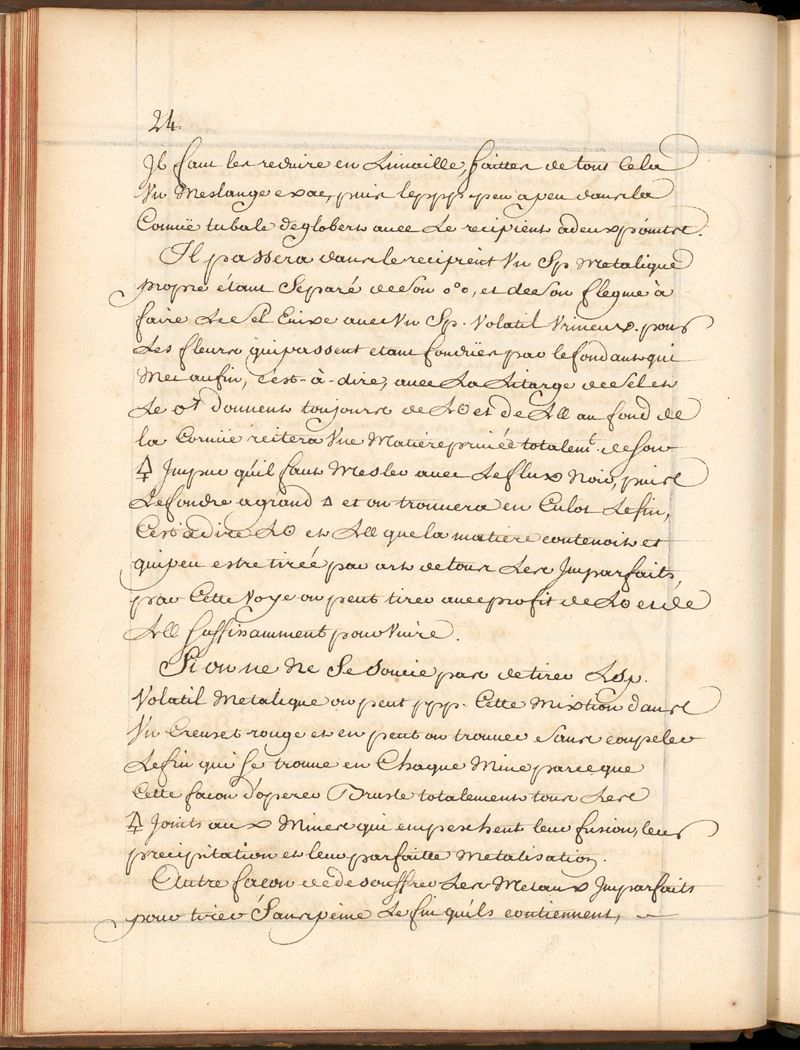 24.
Il faut les reduire en Limaille, faittes de tout cela
Vn Meslange exac, puis le ppp. peu a peu dans la
Cornüe tubale de globert avec Le recipient a deux pointes.
Il passera dans le recipient Vn Sp. Metalique
propre étant Separé de son o°o, et de son flegme à
faire Le Sel Enixe avec Vn Sp. Volatil Vrineux. pour
Les fleurs qui passent etant fondües par le fondant qui
Met au fin, C'est-à-dire, avec La Litarge de Sel et
Le donnent toujours de L☉ et de L☾ au fond de
la Cornüe restera Vne Matiere privée totalemt. de son
🜍 Impur qu'il faut Mesler avec Le flux Noir, puis
Le fondre a grand 🜂 et on trouvera en Culot Le fin,
C'est a dire L☉ et L☾ que la matiere contenoit et
qui peu estre tirée par art de tous Les Imparfaits,
par Cette Voye on peut tirer avec profit de L☉ et de
L☾ suffisamment pour Vivre.
Si on ne Se soucie pas de tirer Le sp.
Volatil Metalique on peut ppp. Cette Mixtion dans
Vn Creuset rouge et en peut on trouver sans coupeler
Le fin qui se trouve en Chaque Mine parce que
Cette façon d'operer Brusle totalement tous Les
🜍 Joints aux Mines qui empeschent leur fusion, leur
precipitation et leur parfaitte Metalisation.
Autre façon de desouffrer Les Metaux Imparfaits
pour tirer Sans peine Le fin qu'ils contiennent,